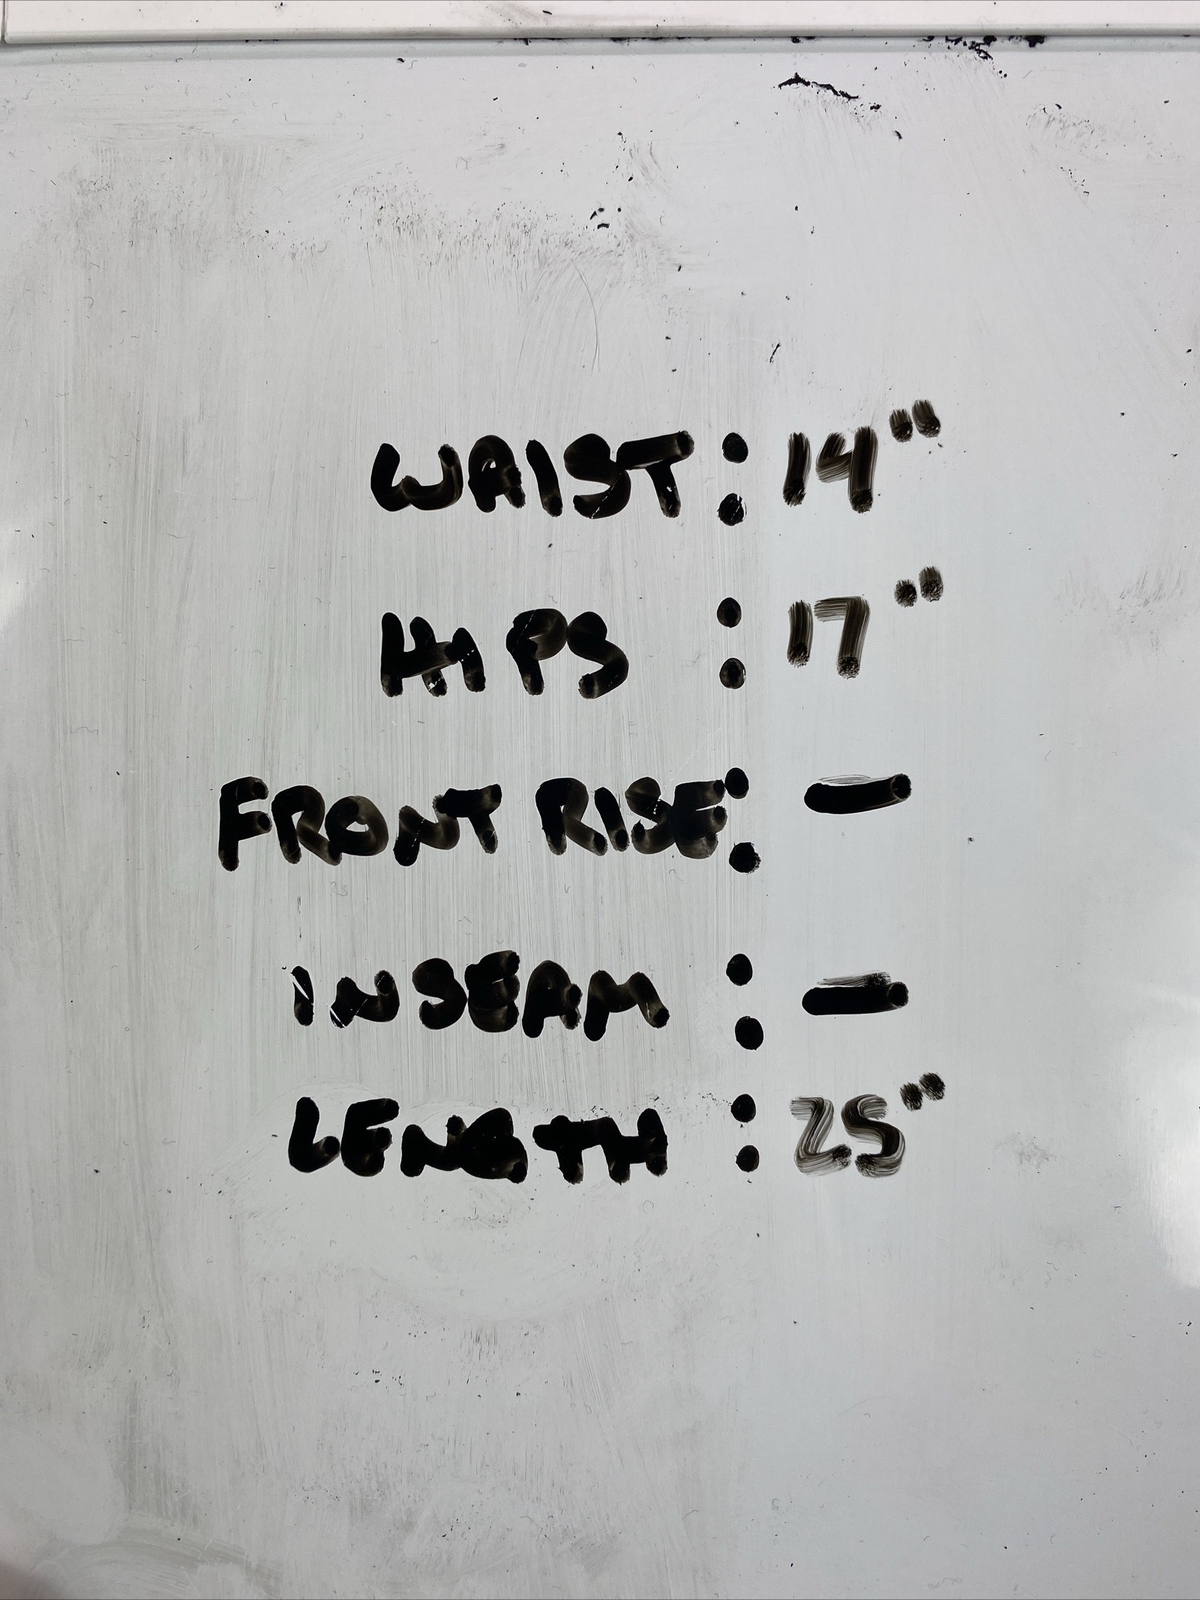 WAIST : 14"
HIPS : 17"
FRONT RISE : —
INSEAM : —
LENGTH : 25"